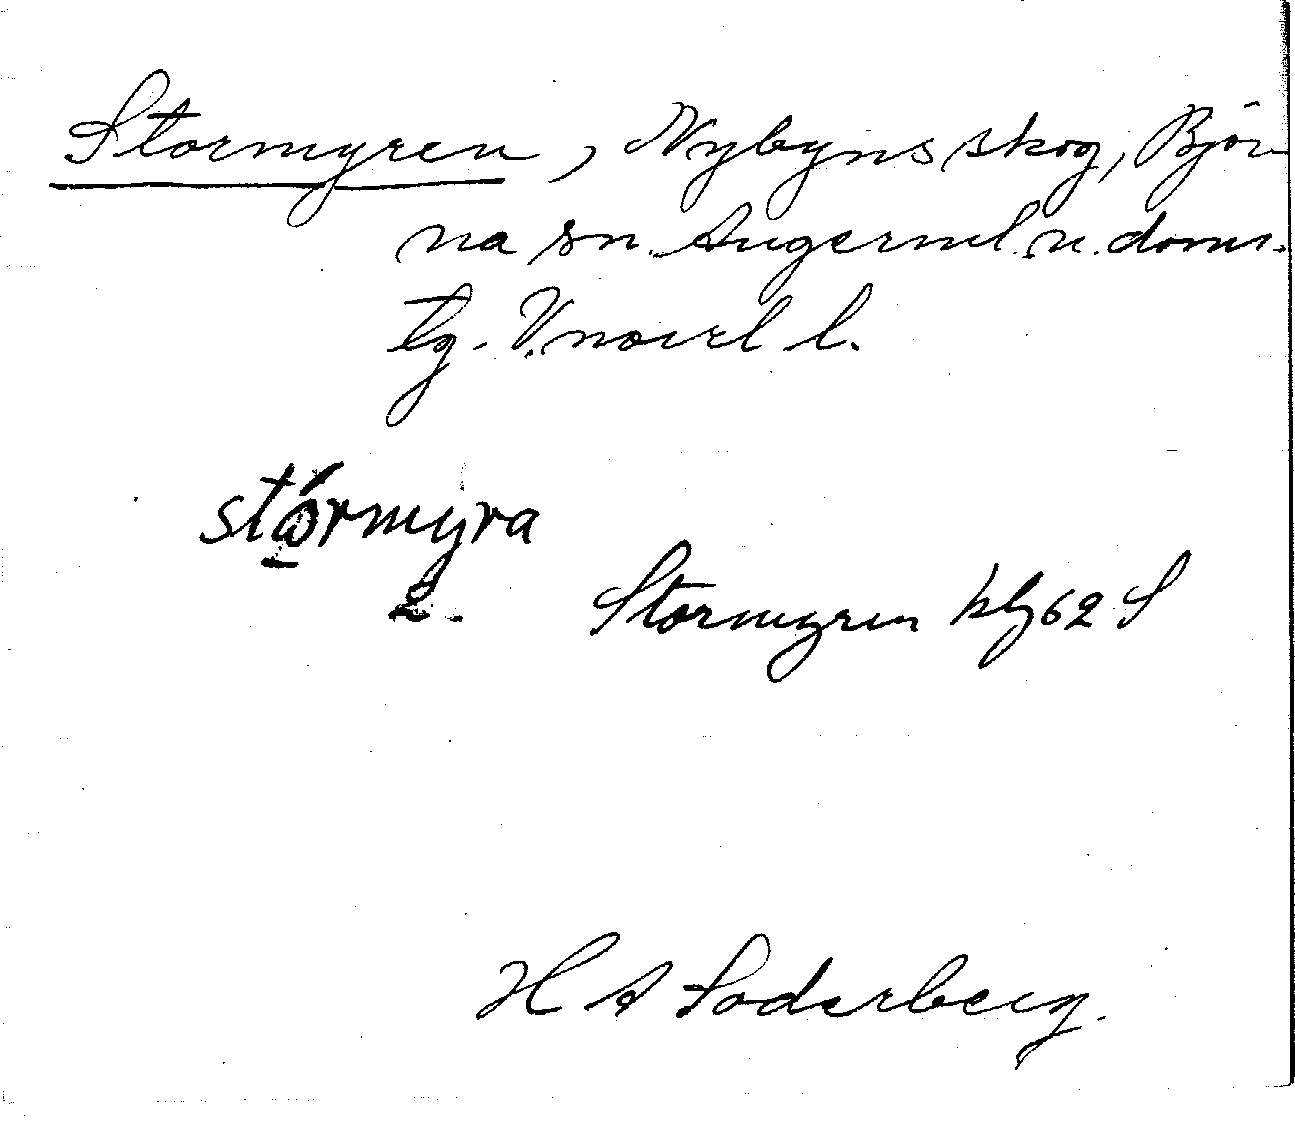 Stormyren, Nybyns skog, Björ-
na sn. Ångerml. n. doms.
tg. V.norrl l.
stórmyra
2.
Stormyren kbl 62 S
H A Söderberg.